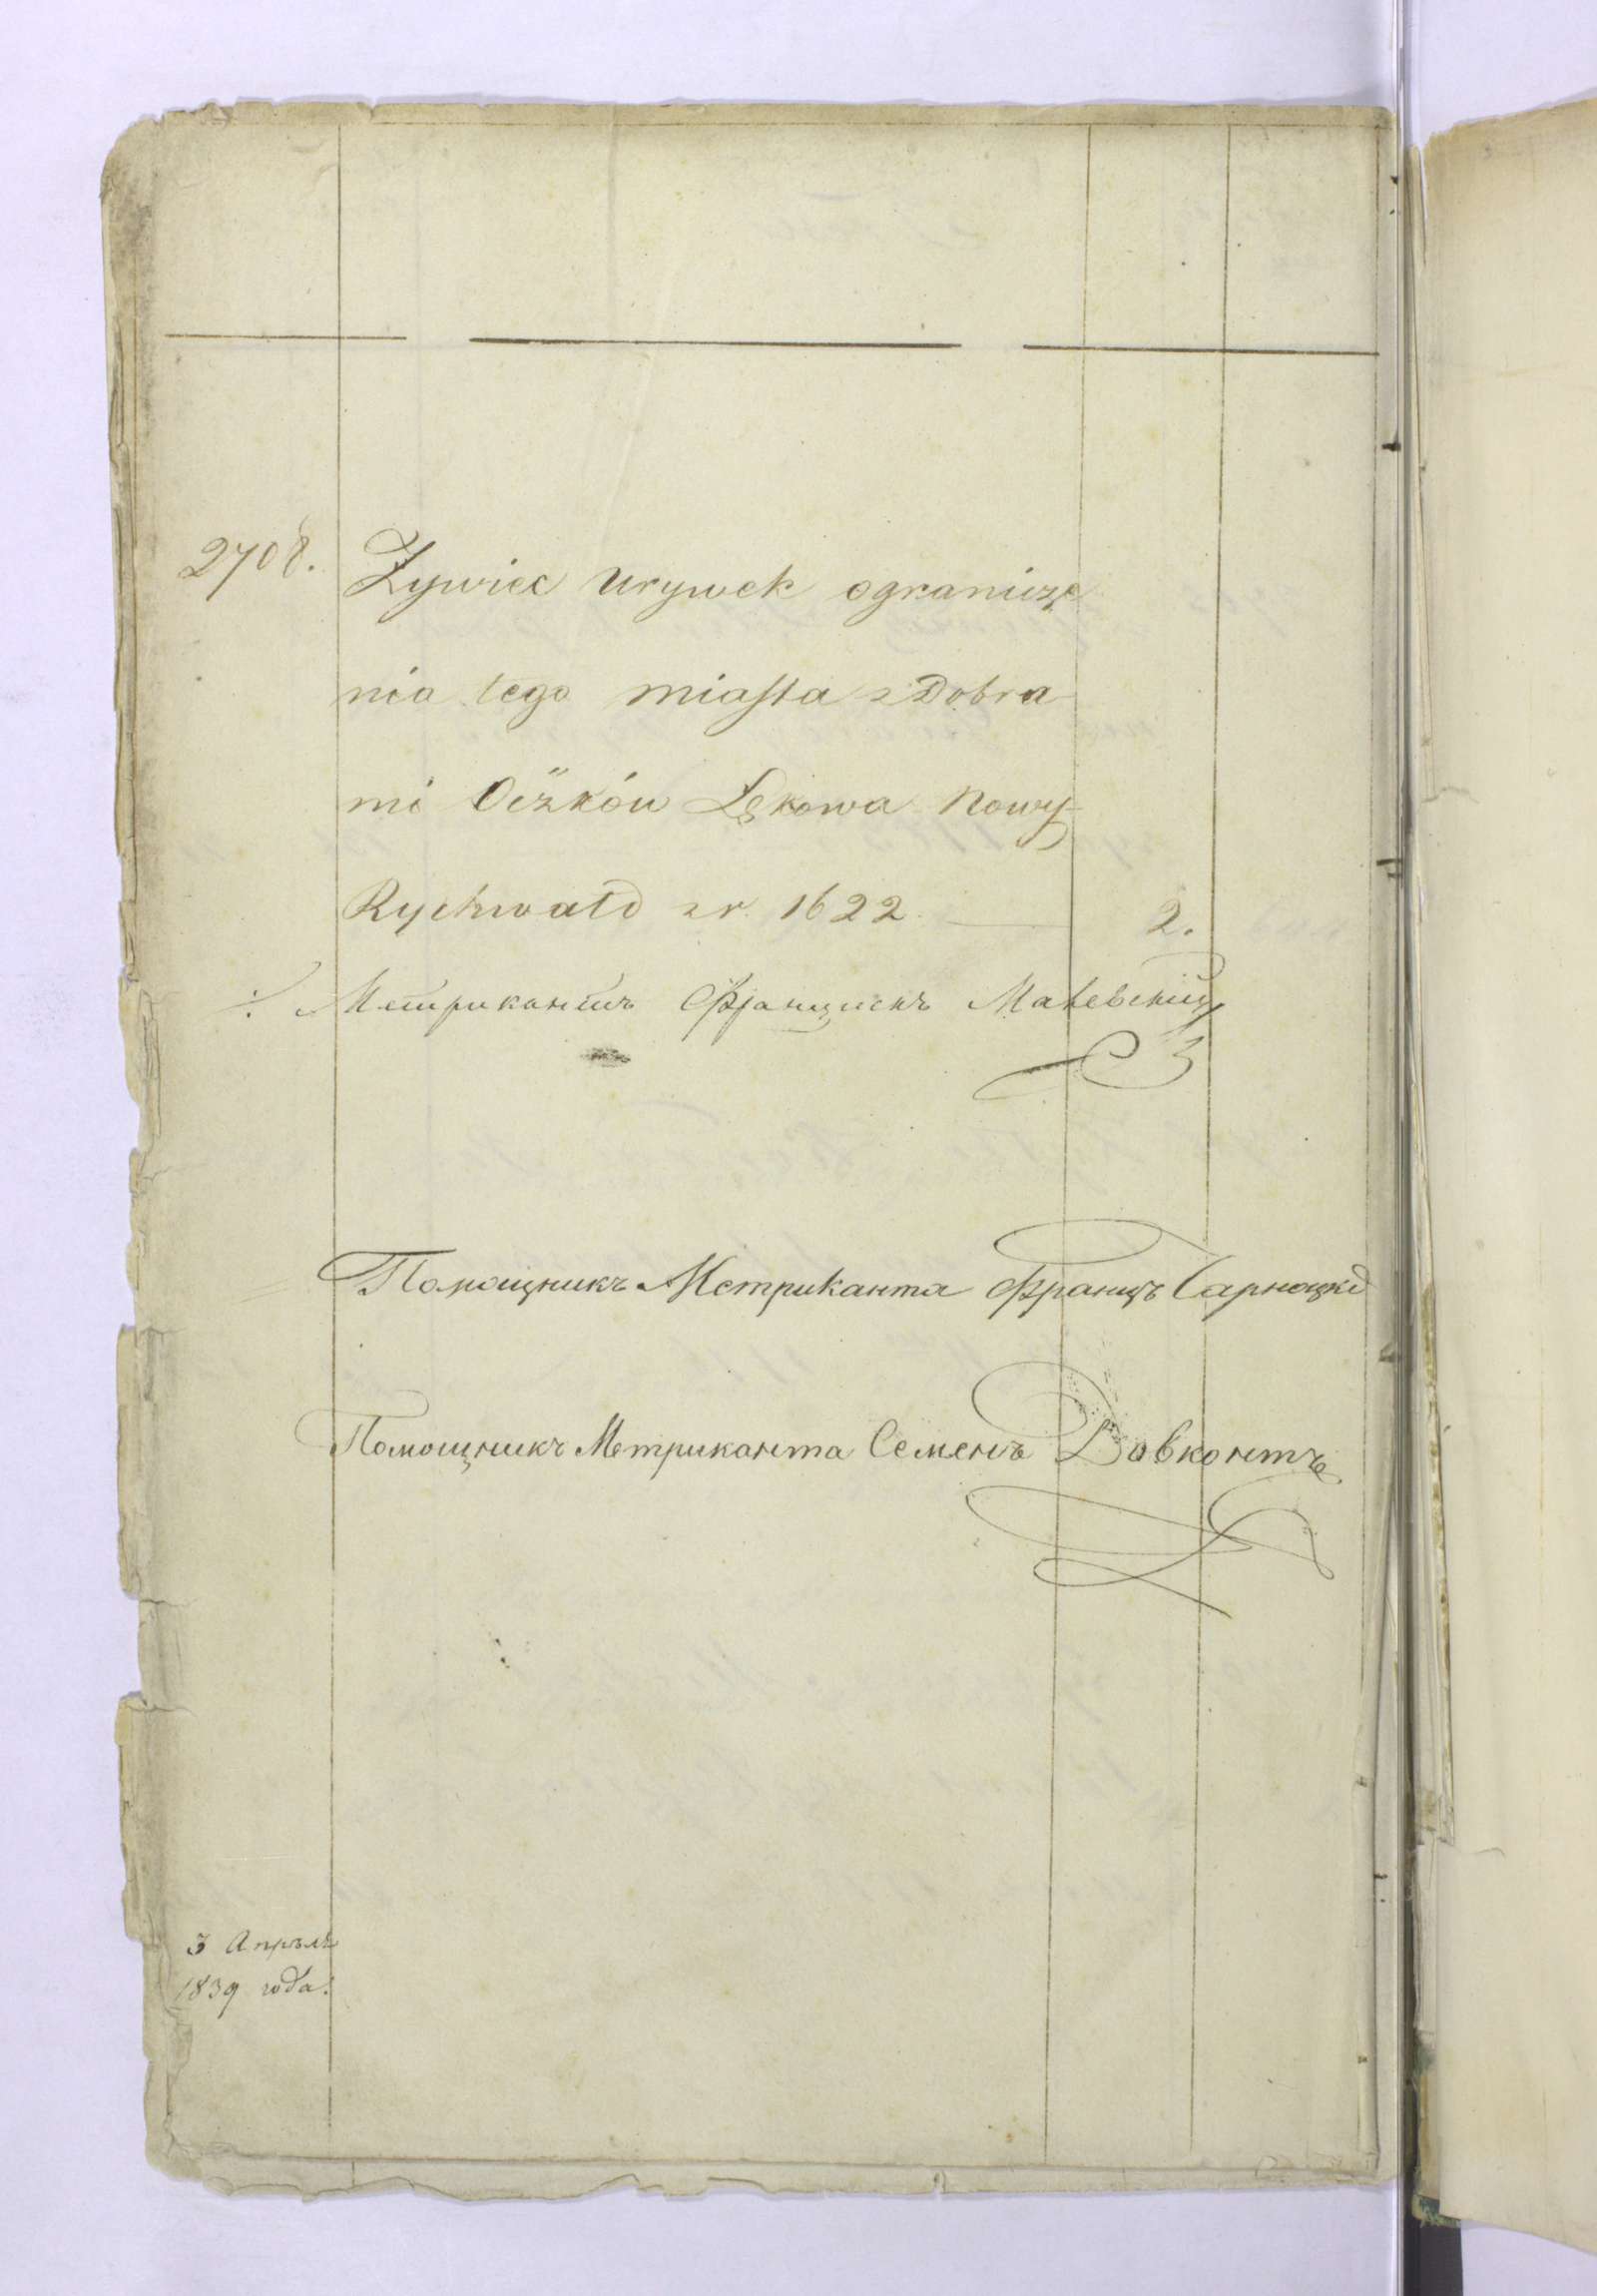 2708. Zywiec Urywek ogranicze
nia tego miasta z Dobra
mi Oczków Łękowa Nowy-
Rychwałd z r. 1622 — 2.
Метрикантъ Францискъ Малевскій
Помощникъ Метриканта Францъ Чарноцкій
Помощникъ Метриканта Семенъ Довконтъ.
3 Апрѣля
1839 года.